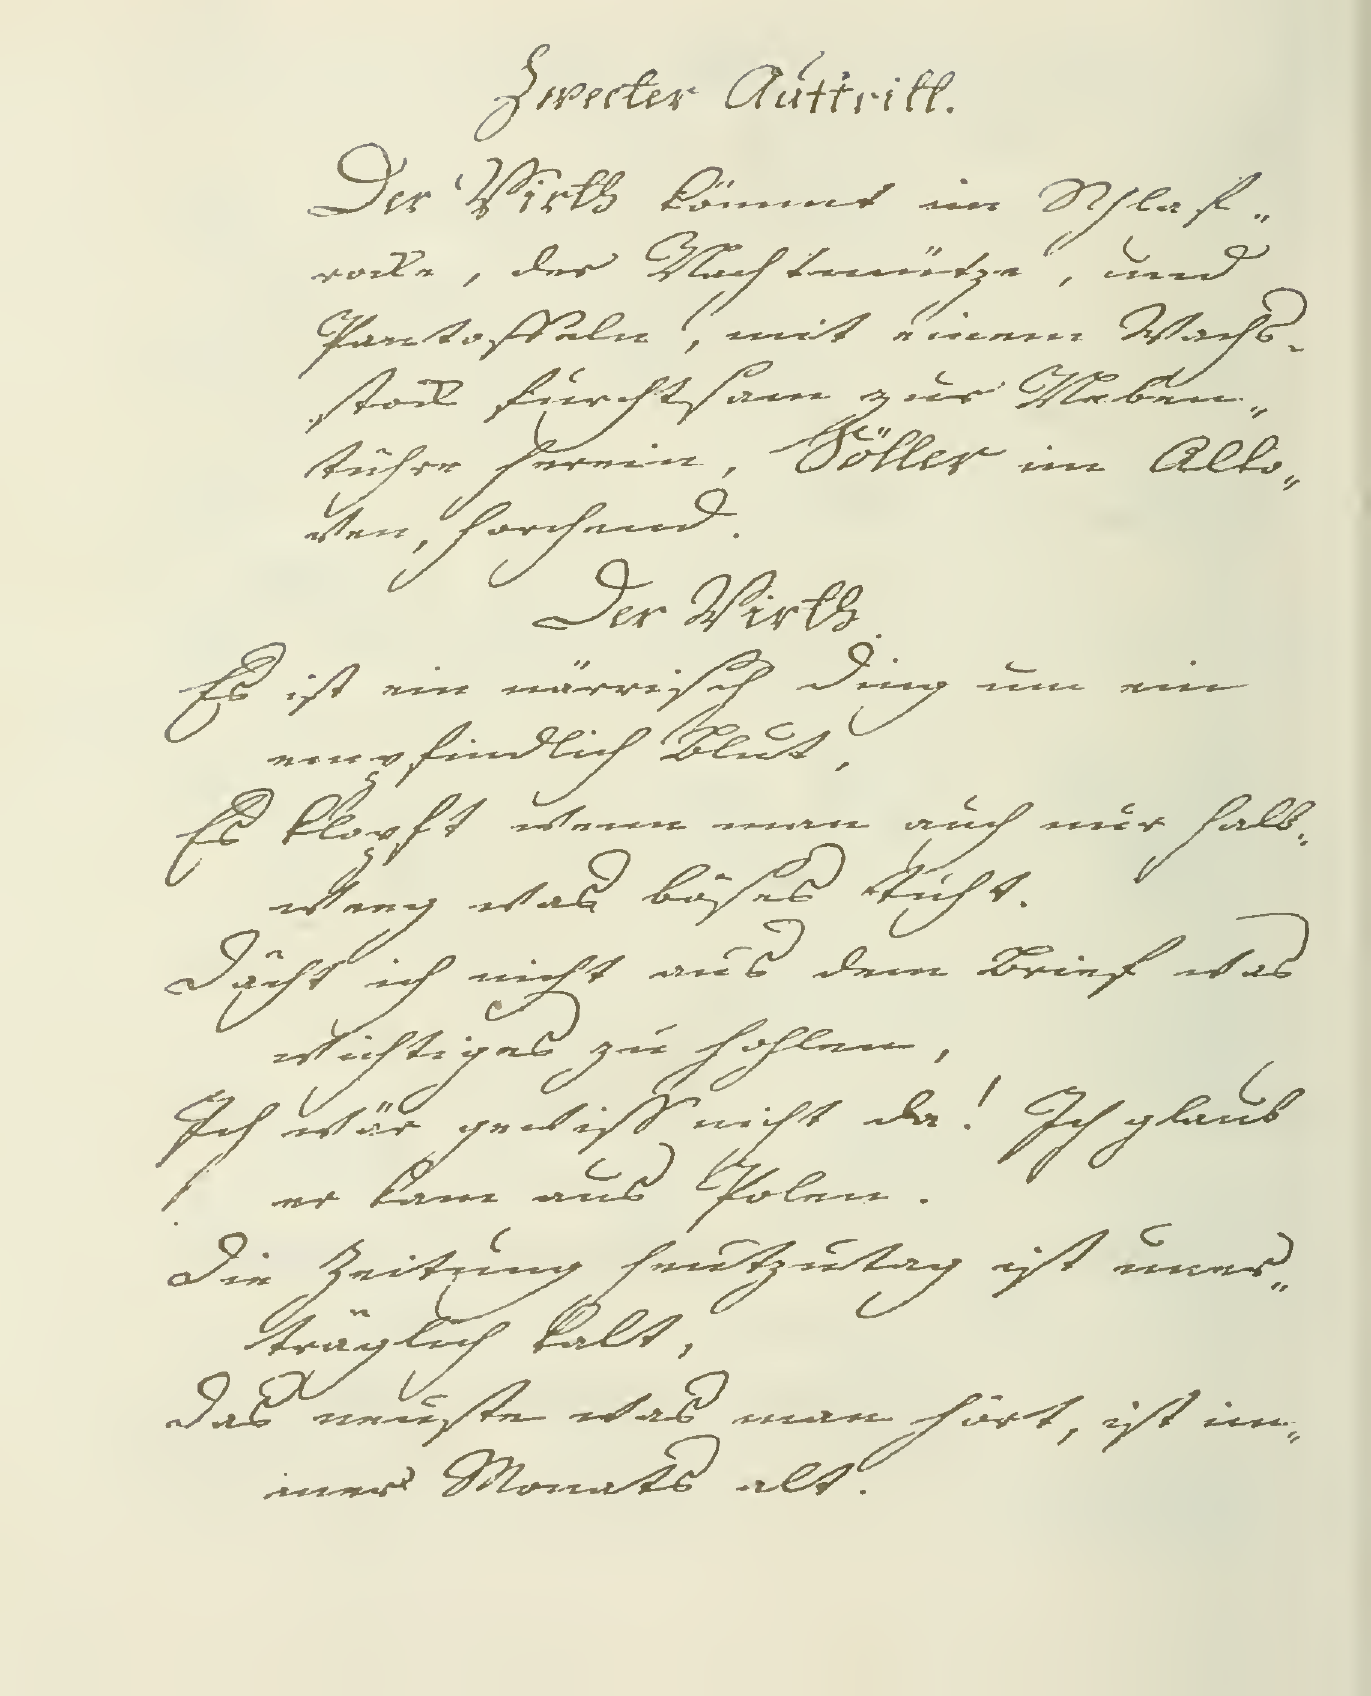 Zweeter Auftritt.
Der Wirth kömmt im Schlaf„
rocke, der Nachtmütze, und
Pantoffeln, mit einem Wachs-
stock furchtsam zur Neben„
tühre herein, Söller im Alko„
ven, horchend.
Der Wirth.
Es ist ein närrisch Ding um ein
empfindlich Blut,
Es klopft wenn man auch nur halb„
weeg was böses tuht.
Dächt ich nicht aus dem Brief was
wichtiges zu hohlen,
Ich wär gewiss nicht da! Ich glaub
er kam aus Polen.
Die Zeitung heutzutag ist uner„
träglich kalt,
Das neuste was man hört, ist im„
mer Monats alt.